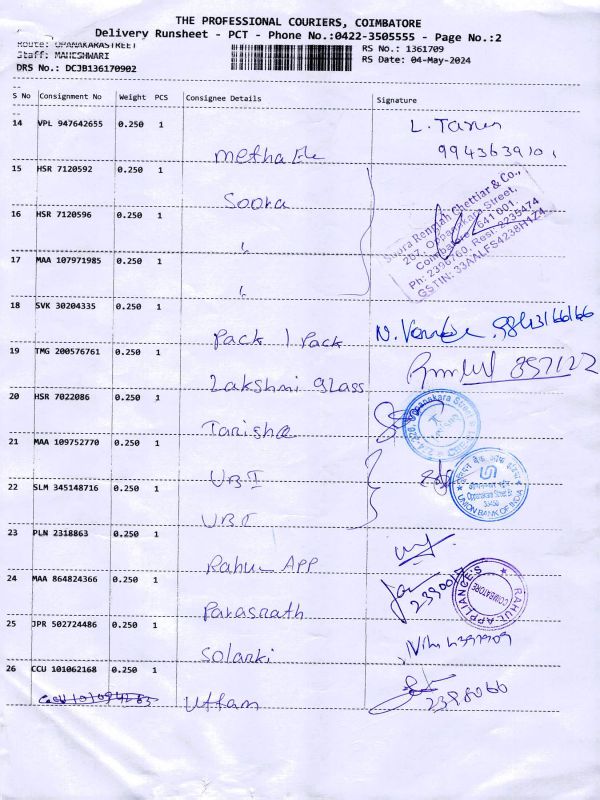 THE PROFESSIONAL COURIERS, COIMBATORE
Delivery Runsheet - PCT - Phone No.:0422-3505555 - Page No.:2
Route: OPANAKARASTREET
RS No.: 1361709
Staff: MAHESHWARI
RS Date: 04-May-2024
DRS No.: DCJB136170902
S No Consignment No Weight PCS Consignee Details Signature
14 VPL 947642655 0.250 1
L. Tarun
metha
9943639101
15 HSR 7120592 0.250 1
Soora
16 HSR 7120596 0.250 1
"
17 MAA 107971985 0.250 1
"
Soora Rengiah Chettiar & Co.,
207, Oppanakara Street,
Coimbatore - 641 001.
Ph: 2396760, Resi: 2235474
GSTIN: 33AALFS4238H1Z4
18 SVK 30204335 0.250 1
Pack 1 Pack
19 TMG 200576761 0.250 1
Lakshmi glass
20 HSR 7022086 0.250 1
Tanishq
21 MAA 109752770 0.250 1
UBI
22 SLM 345148716 0.250 1
UBI
UNION BANK OF INDIA
Oppanakara Street Br.
23 PLN 2318863 0.250 1
Rahul APP
24 MAA 864824366 0.250 1
RAHUL APPLIANCES
COIMBATORE
Parasnath
25 JPR 502724486 0.250 1
Solanki
26 CCU 101062168 0.250 1
Uttam
2398066